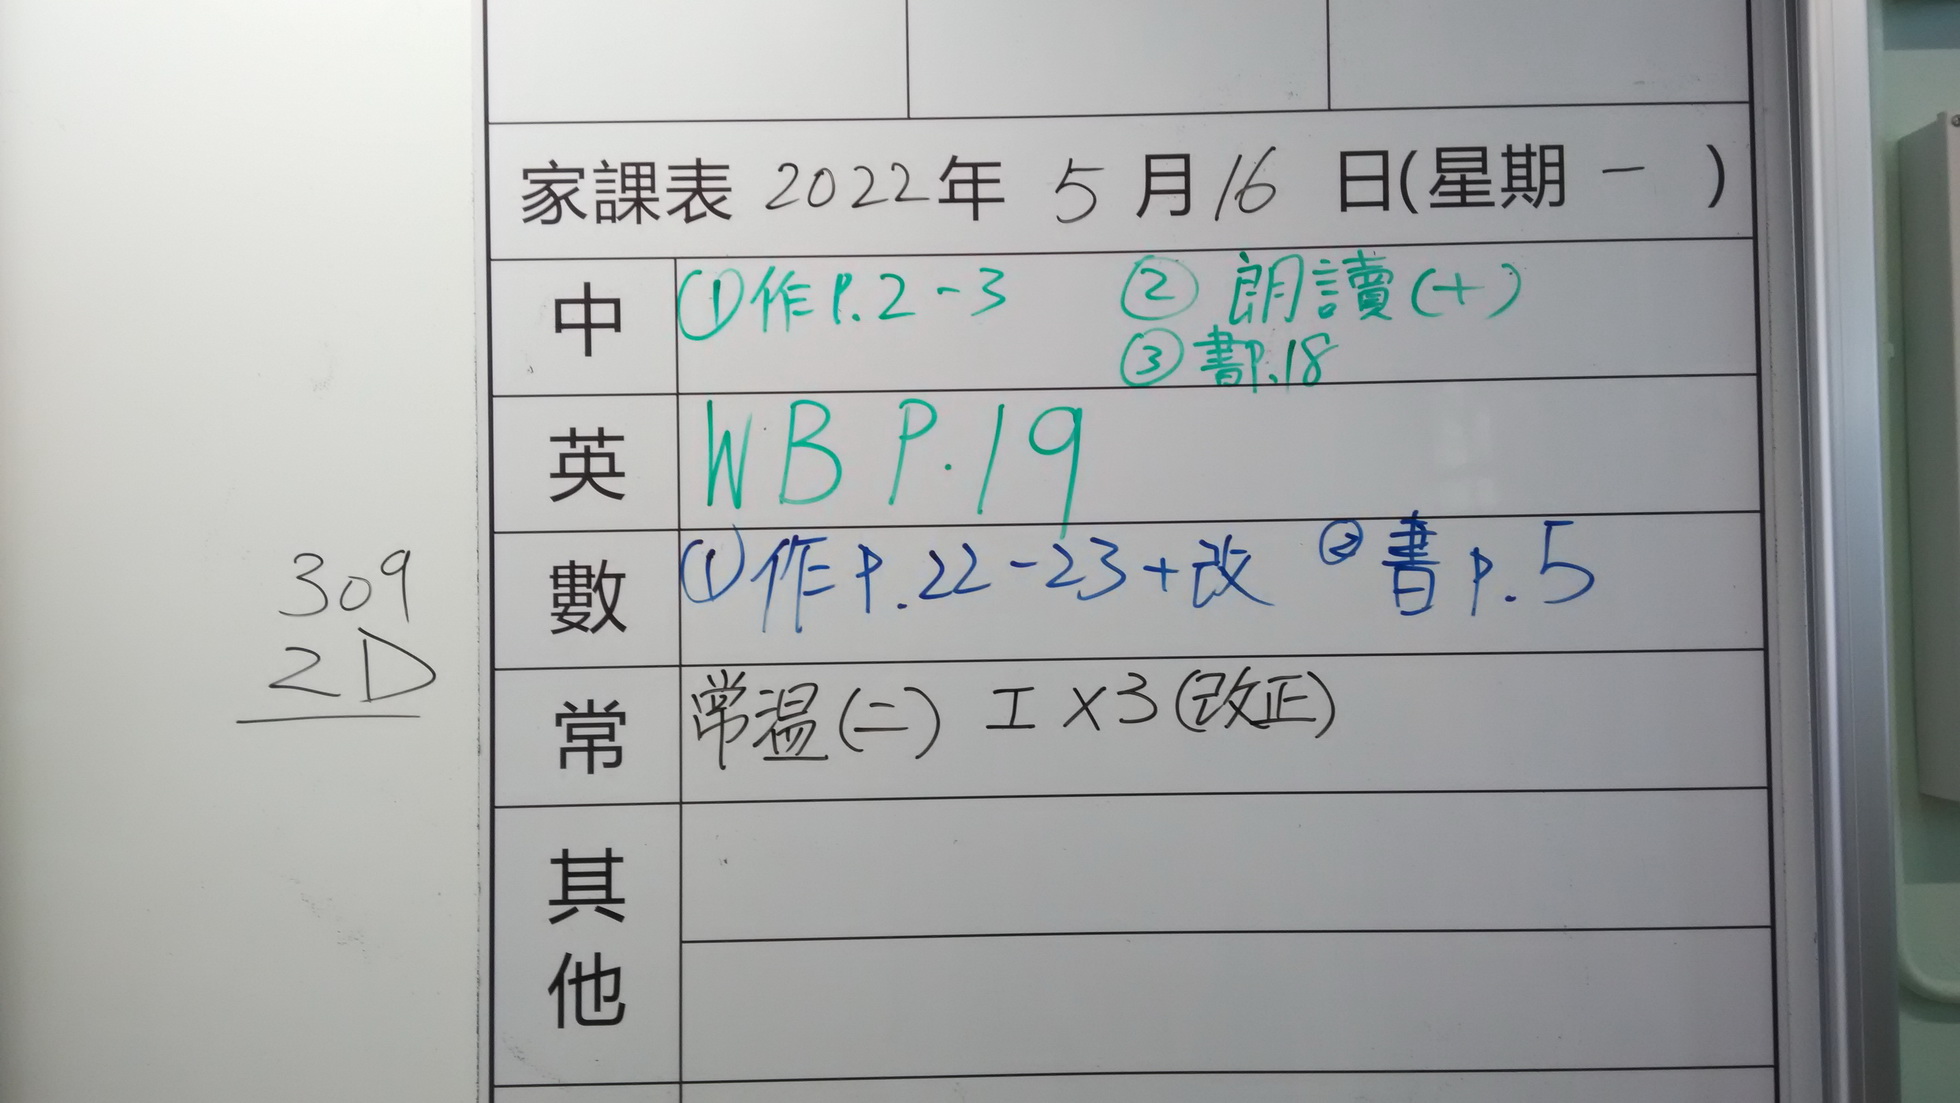 家課表 2022年 5月16日(星期一)
中 ①作P.2-3 ②朗讀(十)
③書P.18
英 WB P.19
數 ①作P.22-23+改 ②書P.5
常 常溫(二) 工×3(改正)
其他
309
2D